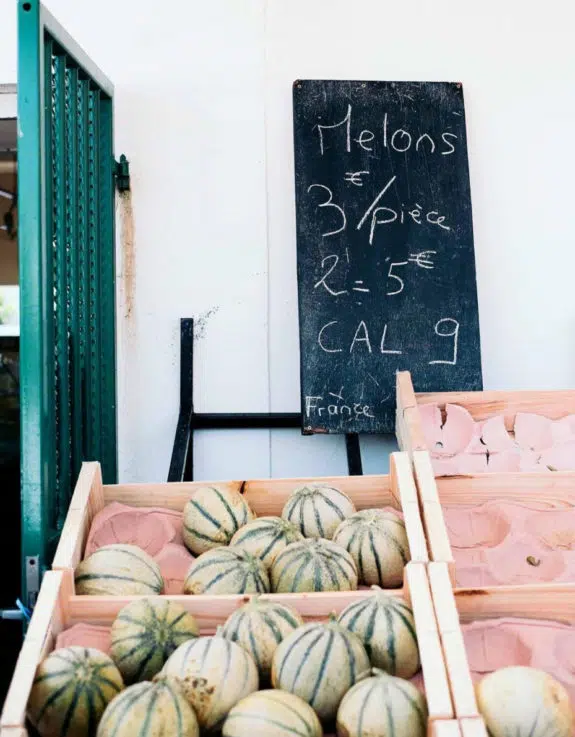 Melons
3€/pièce
2=5€
CAL 9
France